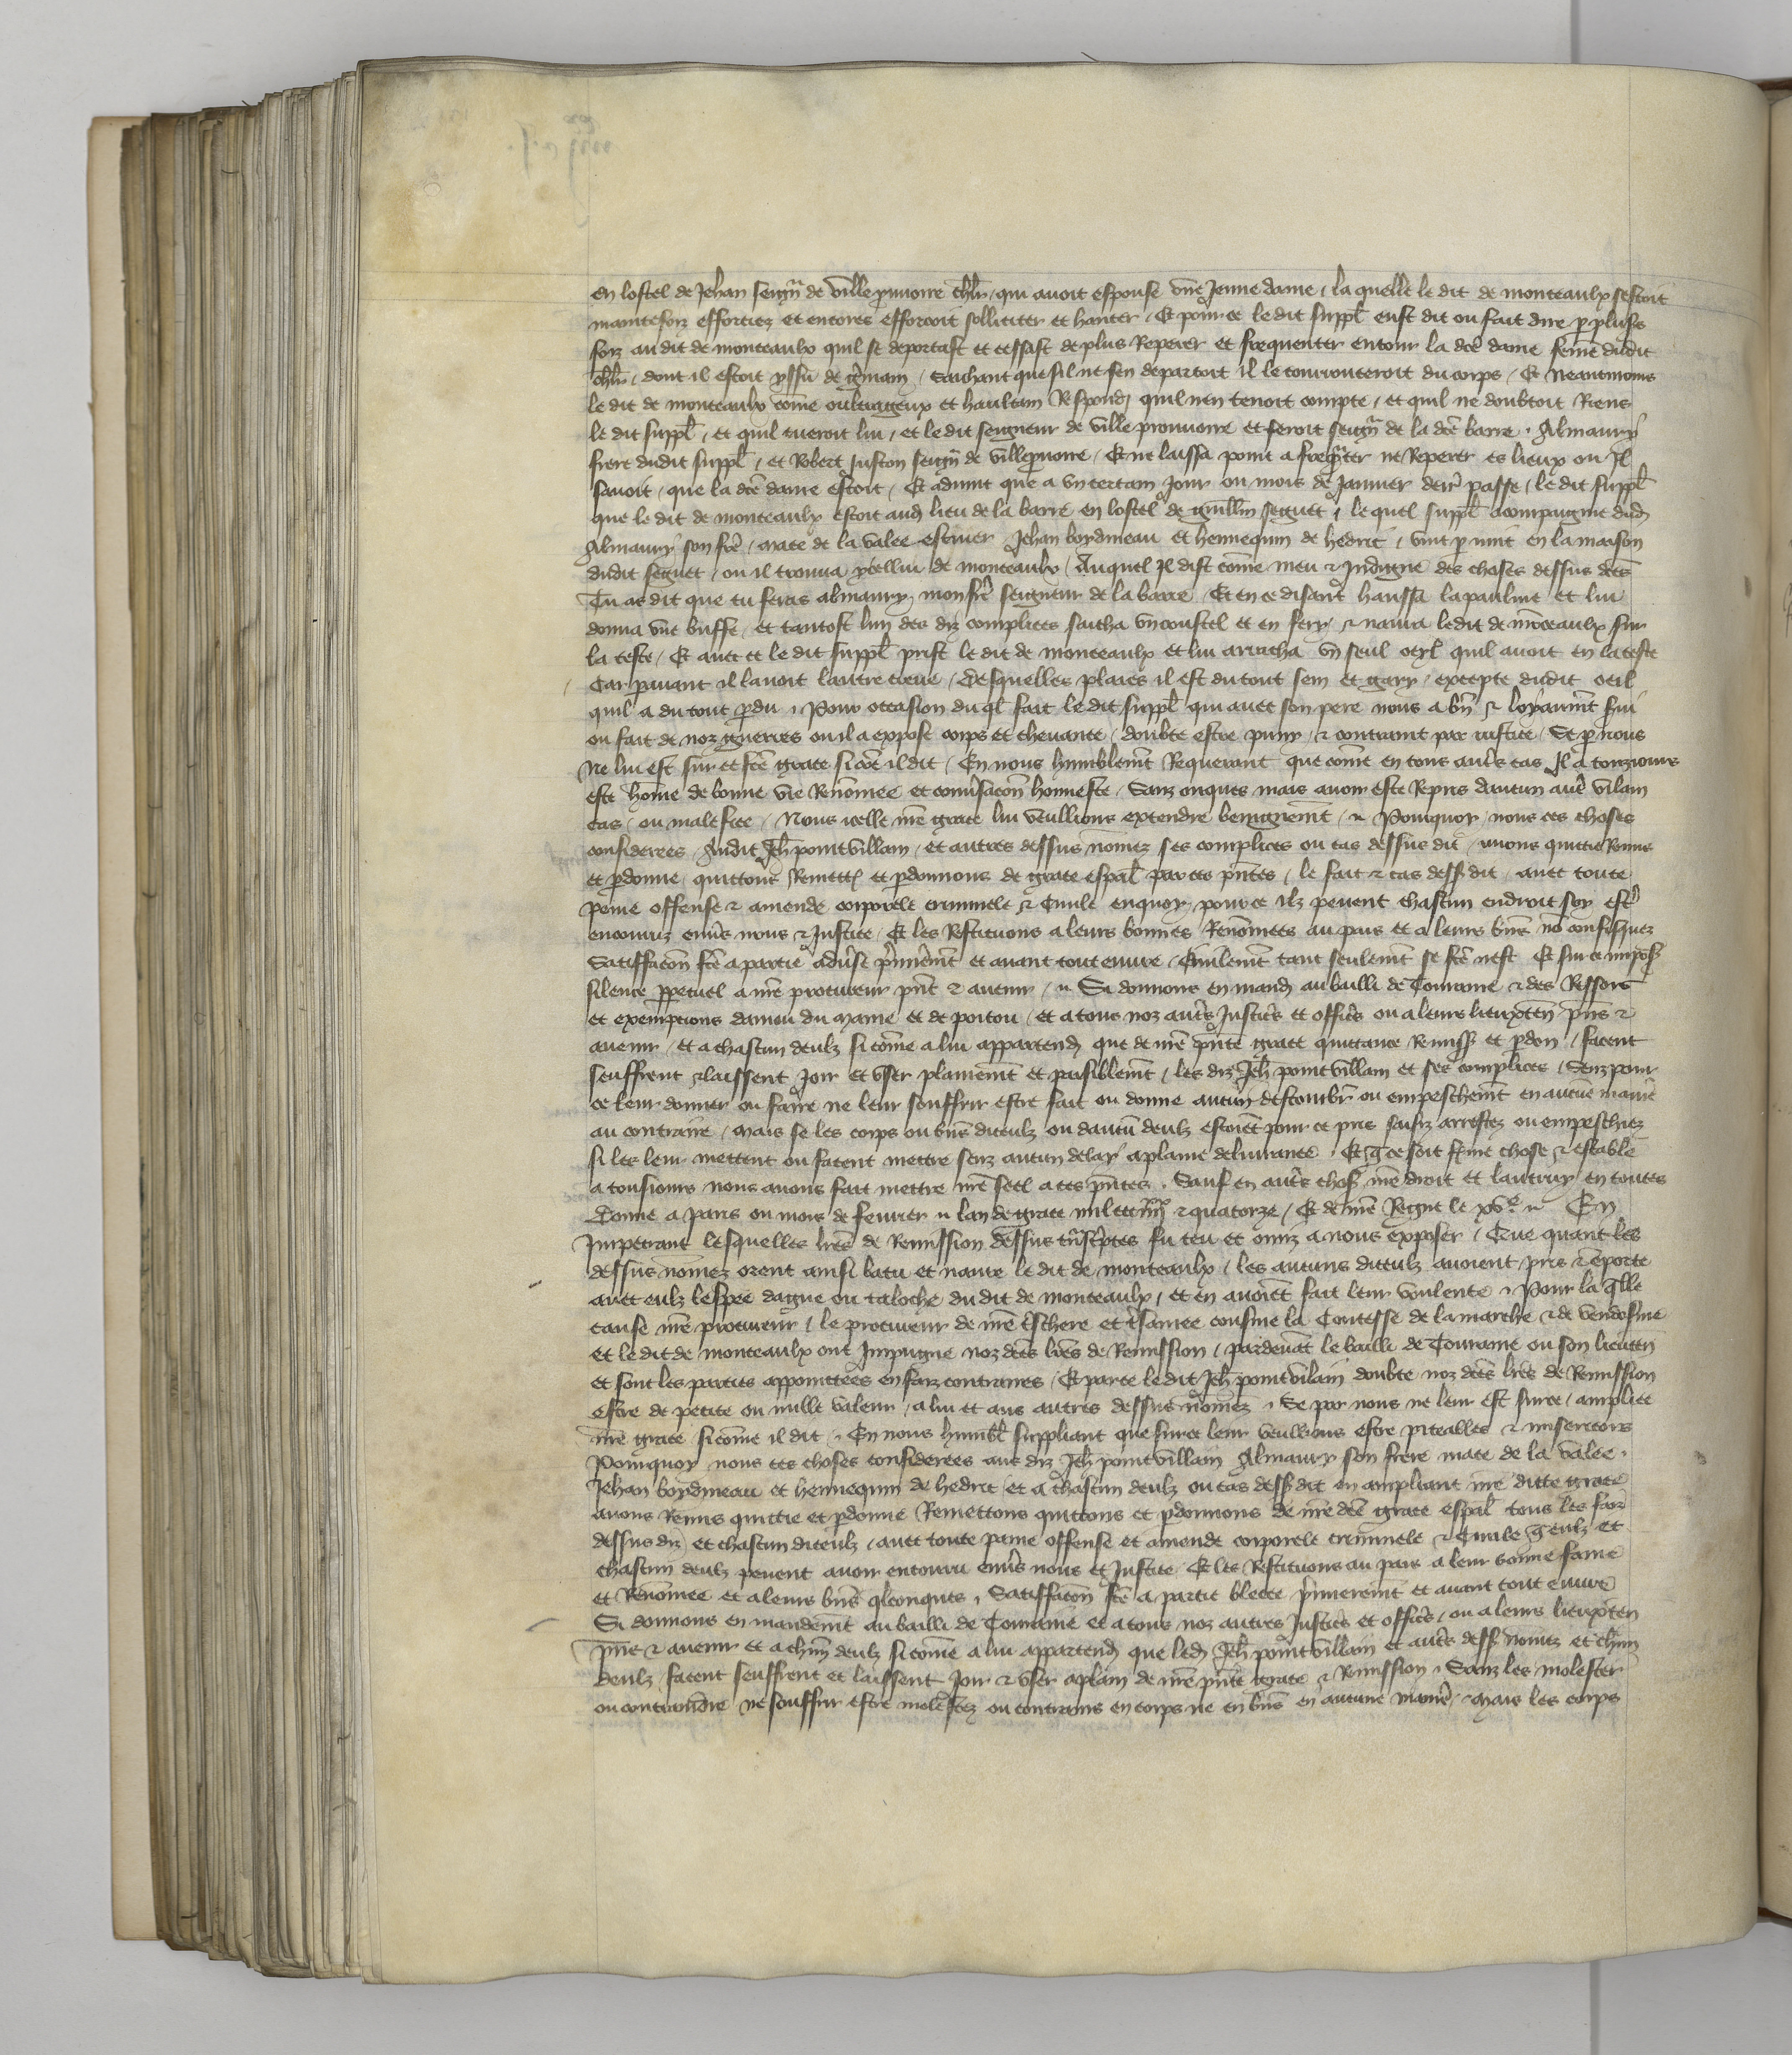 en lostel de Jehan seigñ de ville prouorre chlr̃ / qui auoit espouse vne Jeune dame / la quelle le dit de monteaulx sestoit
maintefoiz efforciez et encores efforcoit solliciter et hanter / Et pour ce le dit suppl̃ eust dit ou fait dire p plus̃s
foiz au dit de monteaulx quil se deportast et cessast de plus Reperer et frequenter entour la dc̃e dame feme dudit
chlr̃ / dont il estoit yssu de g̃main / Saichant que sil ne sen departoit il le courrouceroit du corps / Et Neantmoins
le dit de monteaulx com̃e oultrageux et haultain Respondy quil nen tenoit compte / et quil ne doubtoit Riens
le dit suppl̃ / et quil tueroit lui / et le dit seigneur de ville prouorre et feroit seigñ de la dc̃e barre . Almaury
frere dudit suppl̃ / et Robert Juston seigñ de ville / Et ne laissa point a freq̃nter ne Reperer es lieux ou Il
sauoit / que la dc̃e dame estoit / Et aduint que a vn certain Jour ou mois de Januier derr̃ passe / le dit suppl̃
que le dit de monteaulx estoit aud̃ lieu de la barre en lostel de Guillm̃ seguet / le quel suppl̃ acompaignie dud̃
Almaury son frẽ / mace de la valee escuier Jehan boydineau et hennequin de hedrec / vint p nuit en la maison
dudit seguet / ou il trouua ycellui de monteaulx / Auquel Il dist com̃e meu & Indigne des choses dessus dc̃es
Tu as dit que tu feras almaury mon frẽ seigneur de la barre / Et en ce disant haussa la paulme et lui
donna vne buffe / et tantost lun des diz complices saicha vn coustel et en fery / & naura ledit de monceaulx sur
la teste / Et auec ce le dit suppl̃ prist le dit de monteaulx et lui arracha vn seul oeyl quil auoit en la teste
Car p auant il lauoit lautre creue / desquelles plaies il est du tout sein et gary / excepte dudit oeil
quil a du tout p̃du / Pour occasion du ql fait le dit suppl̃ qui auec son pere nous a bñ & loyaumẽt s̃ui
ou fait de noz guerres ou il a expose corps et cheuance / doubte estre puny / & contraint par iustice / Se p nous
Ne lui est sur ce fcẽ grace si cõe il dit / En nous humblemẽt Requerant que com̃e en tous autr̃s cas Il a touziours
este home de bonne vie Renom̃ee et conũsacon honneste / Sanz onques mais auoir este Repris daucun autr̃ vilain
cas / ou malefice / Nous icelle nr̃e grace lui veullions extendre benignemẽt / Pourquoy nous ces choses
considerees / Audit Jeh̃ pointvillain / et autres dessus nom̃ez ses complices ou cas dessus dit / auons quictie Remis
et p̃donne / quittons Remett̃ et p̃donnons de grace esp̃al par ces pñtes / le fait & cas dess̃ dit / auec toute
peine offense & amende corporele criminele & Ciuile enquoy pour ce ilz peuent chascun endroit soy estr̃
encouruz enũs nous & Justice / Et les Restituons a leurs bonnes Renom̃ees au pais et a leurs biẽs no confisquez
Satiffacõn fcẽ a partie aduerse p̃mierem̃t et auant tout euure / Ciuilemẽt tant seulemẽt se fcẽ nest Et sur ce impos̃
silence p̃petuel a nr̃e procureur pñt & auenir / Si donnons en mand̃ au bailli de Touraine & des Ressors
et exempcions daniou du maine et de poitou / et a tous noz autr̃s Justic̃s et offic̃s ou a leurs lieuxten̄ pñs &
auenir / et a chascun deulz si com̃e a lui appartend̃ que de nr̃e pñte grace quittance Remiss̃ et p̃don / facent
seuffrent & laissent Joir et vser plainemẽt et paisiblemẽt / les diz Jeh̃ pointvillain et ses complices / Senz pour
ce leur donner ou faire ne leur souffrir estre fait ou donne aucun destourbr̃ ou empeschemẽt en aucune manie
au contraire / mais se les corps ou biẽs diceulz ou daucũ deulz estoiẽt pour ce pris saisiz arrestez ou empeschiez
si les leur mettent ou facent mettre senz aucun delay a plaine deliurance / Et q̃ ce soit fẽme chose & estable
a tousiours nous auons fait mettre nr̃e seel a ces pñtes . Sauf en autr̃s chos̃ nr̃e droit et lautruy en toutes
Donne a paris ou mois de feurier lan de grace mil ccc iiijxx & quatorze / Et de nr̃e Regne le xve En
Impetrant lesquelles lr̃es de Remission dessus tñscriptes fu teu et omiz a nous exposer / Que quant les
dessus nom̃ez orent ainsi batu et naure le dit de monteaulx / les aucuns diceulz auoient pris & emporte
auec eulz lespee dague ou taloche du dit de monteaulx / et en auoiẽt fait leur voulente / Pour la qlle
cause nr̃e procureur / le procureur de nr̃e tr̃schere et tr̃samee cousine la Contesse de la marche & de vendosme
et le dit de monteaulx ont Impugne noz dc̃es lr̃es de Remission / pardeuãt le bailli de Touraine ou son lieuteñ
et sont les parties appointtees en faiz contraires / Et parce le dit Jeh̃ pointvilain doubte noz dc̃es lr̃es de Remission
estre de petite ou nulle valeur / a lui et aus autres dessus nom̃ez / Se par nous ne leur est sur ce / ampliee
nr̃e grace si com̃e il dit / En nous humbl̃ suppliant que sur ce leur veullions estre piteables & misericors
Pourquoy nous ces choses considerees aus diz Jeh̃ pointvillain Almaury son frere mace de la valee .
Jehan boydineau et hennequin de hedrec / et a chascun deulz ou cas dess̃ dit en ampliant nr̃e ditte grace
auons Remis quictie et p̃donne Remettons quittons et p̃donnons de nr̃e dc̃e grace esp̃al tous les faiz
dessus diz et chascun diceulz / auec toute paine offense et amende corporele criminele & Ciuile q̃ eulz et
chascun deulz peuent auoir encouru enũs nous et Justice / Et les Restituons au pais a leur bonne fame
et Renom̃ee et a leurs biẽs qlconques / Satiffacõn fcẽ a partie blecee p̃mieremẽt et auant tout euure
Si donnons en mandemẽt au bailli de Touraine et a tous noz autres Justic̃s et offic̃s / ou a leurs lieuxten
pñs & auenir et a chũn deulz si com̃e a lui appartend̃ que led̃ Jeh̃ pointvillain et autr̃s dess̃ nom̃ez et chũn
deulz facent seuffrent et laissent Joir & vser a plain de nr̃e pñte grace & Remission / Sanz les molester
ou contraindre ne souffrir estre molestez ou contrains en corps ne en biẽs en aucune manie / mais les corps